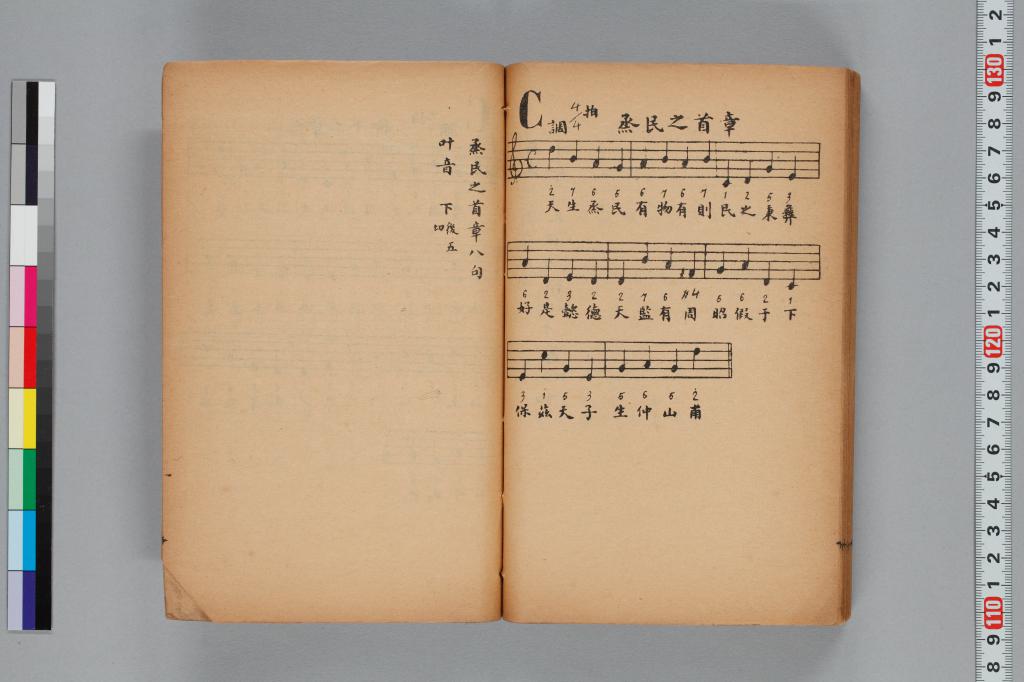 C調 4/4 拍
烝民之首章
2 7 6 5 6 7 6 7 1 2 5 3
天生烝民有物有則民之秉彝
6 2 3 2 2 7 6 #4 5 6 2 1
好是懿德天監有周昭假于下
3 1 5 3 5 6 5 2
保茲天子生仲山甫
烝民之首章八句
叶音 下後五切
2
1
130
9
8
7
6
5
4
3
2
1
120
9
8
7
6
5
4
3
2
1
110
9
8